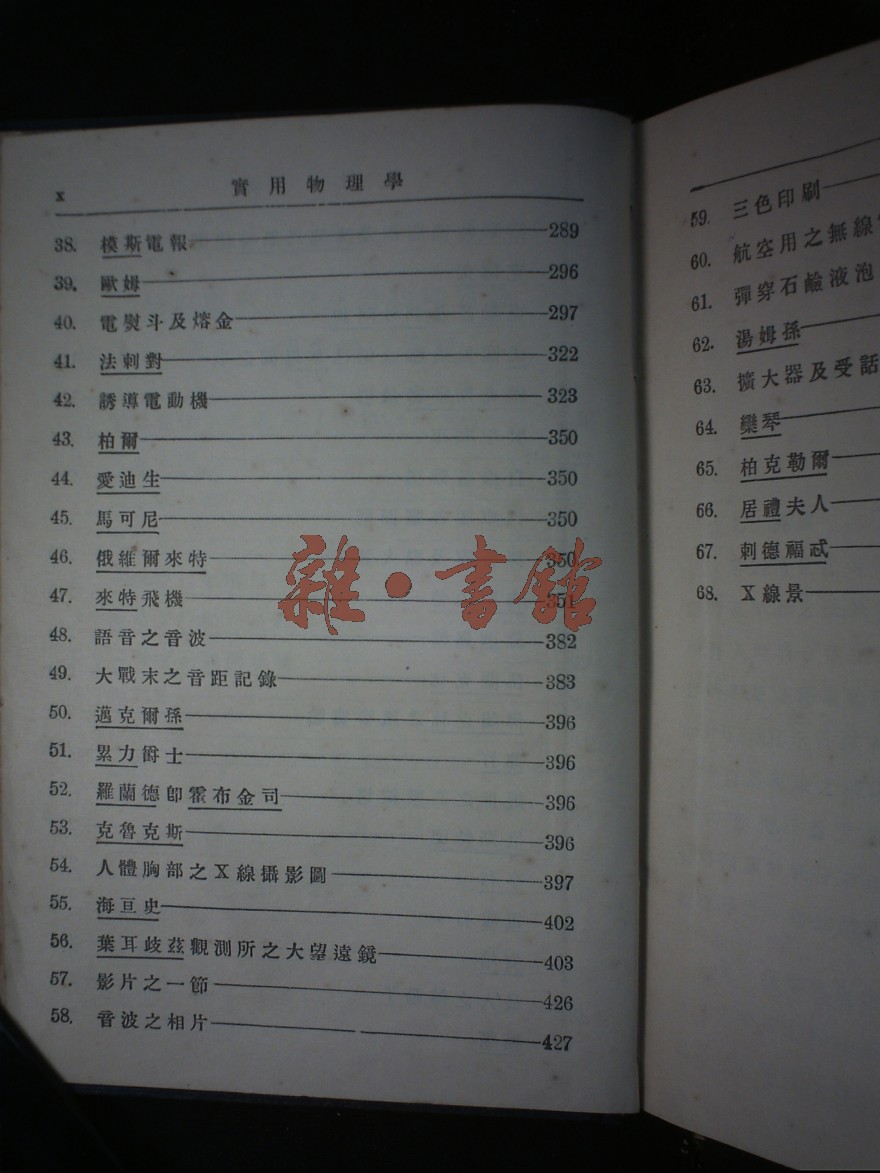 x 實用物理學
38. 模斯電報 289
39. 歐姆 296
40. 電熨斗及熔金 297
41. 法刺對 322
42. 誘導電動機 323
43. 柏爾 350
44. 愛迪生 350
45. 馬可尼 350
46. 俄維爾來特 350
47. 來特飛機 351
48. 語音之音波 382
49. 大戰末之音距記錄 383
50. 邁克爾孫 396
51. 累力爵士 396
52. 羅蘭德卽霍布金司 396
53. 克魯克斯 396
54. 人體胸部之X線攝影圖 397
55. 海亘史 402
56. 葉耳歧茲觀測所之大望遠鏡 403
57. 影片之一節 426
58. 音波之相片 427
雜·書館
59. 三色印刷
60. 航空用之無線
61. 彈穿石鹼液泡
62. 湯姆孫
63. 擴大器及受話
64. 欒琴
65. 柏克勒爾
66. 居禮夫人
67. 刺德福忒
68. X線景